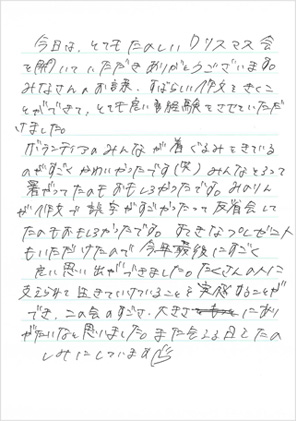 今日は、とてもたのしいクリスマス会
を開いていただきありがとうございます。
みなさんのお言葉、すばらしい作文をきくこ
とができて、とても良い体験をさせていただ
けました。
ボランティアのみんなが着ぐるみをきている
のがすごくかわいかったです(笑)みんなそろって
暑がってたのもおもしろかったです。みのりん
が作文で誤字がすごかったって反省会して
たのもおもしろかったです。すてきなプレゼント
もいただけたので今年最後にすごく
良い思い出ができました。たくさんの人に
支えられて生きていけていることを実感することが
でき、この会のすごさ、大きさにあり
がたいなと思いました。また会える日をたの
しみにしています